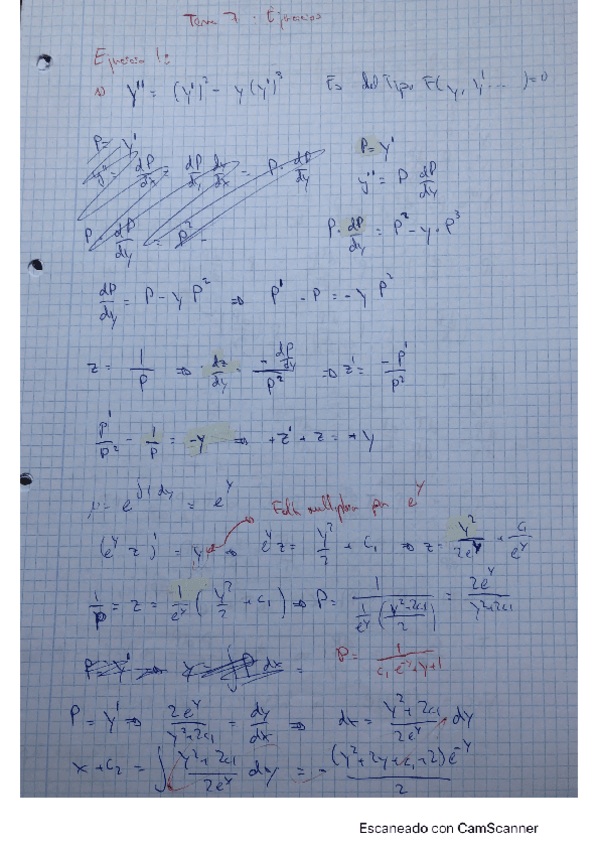 Tarea 7: Ejercicios
Ejercicio 1:
a) y'' = (y')² - y(y')³ Es del Tipo F(y, y' ...) = 0
P = y'
y'' = dP/dx = dP/dy dy/dx = P · dP/dy
P · dP/dy = P² -
P = y'
y'' = P dP/dy
P · dP/dy = P² - y · P³
dP/dy = P - y P² ⇒ P' - P = - y P²
z = 1/P ⇒ dz/dy = (- dP/dy)/P² ⇒ z' = - P'/P²
P'/P² - 1/P = - y ⇒ + z' + z = + y
μ = e^∫1 dy = e^y
Falta multiplicar por e^y
(e^y z)' = y ⇒ e^y z = y²/2 + c₁ ⇒ z = y²/2e^y + c₁/e^y
1/P = z = 1/e^y (y²/2 + c₁) ⇒ P = 1/(1/e^y ((y²+2c₁)/2)) = 2e^y/(y²+2c₁)
P = y' ⇒ y = ∫P dx =
P = y' ⇒ 2e^y/(y²+2c₁) = dy/dx ⇒ dx = (y²+2c₁)/2e^y dy
x + c₂ = ∫ (y²+2c₁)/2e^y dy = - (y²+2y+c₁+2)e^-y / 2
Escaneado con CamScanner